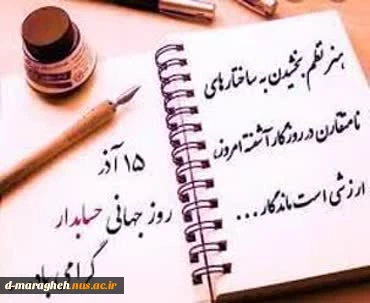 هنر نظم بخشیدن به ساختارهای
نامتقارن در روزگار آشفته امروز،
ارزشی است ماندگار...
۱۵ آذر
روز جهانی حسابدار
گرامی باد
d-maragheh.nus.ac.ir